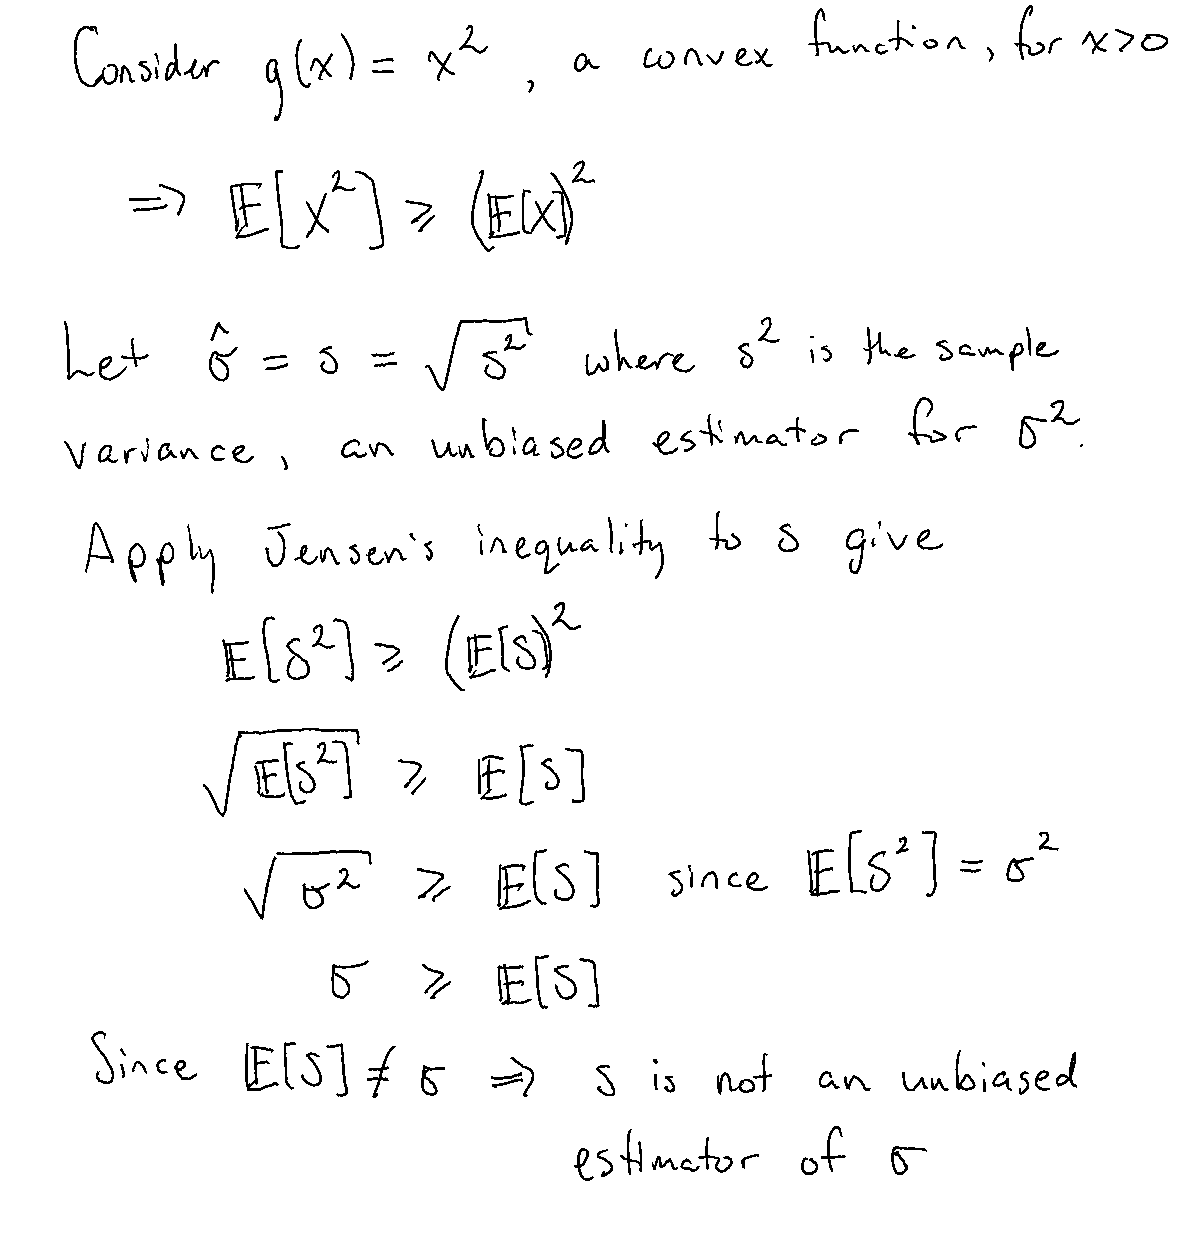 Consider g(x) = x², a convex function, for x>0
⇒ 𝔼[X²] ⩾ (𝔼[X])²
Let σ̂ = s = √s² where s² is the sample
variance, an unbiased estimator for σ².
Apply Jensen's inequality to s give
𝔼[S²] ⩾ (𝔼[S])²
√𝔼[S²] ⩾ 𝔼[S]
√σ² ⩾ 𝔼[S] since 𝔼[S²] = σ²
σ ⩾ 𝔼[S]
Since 𝔼[S] ≠ σ ⇒ s is not an unbiased
estimator of σ